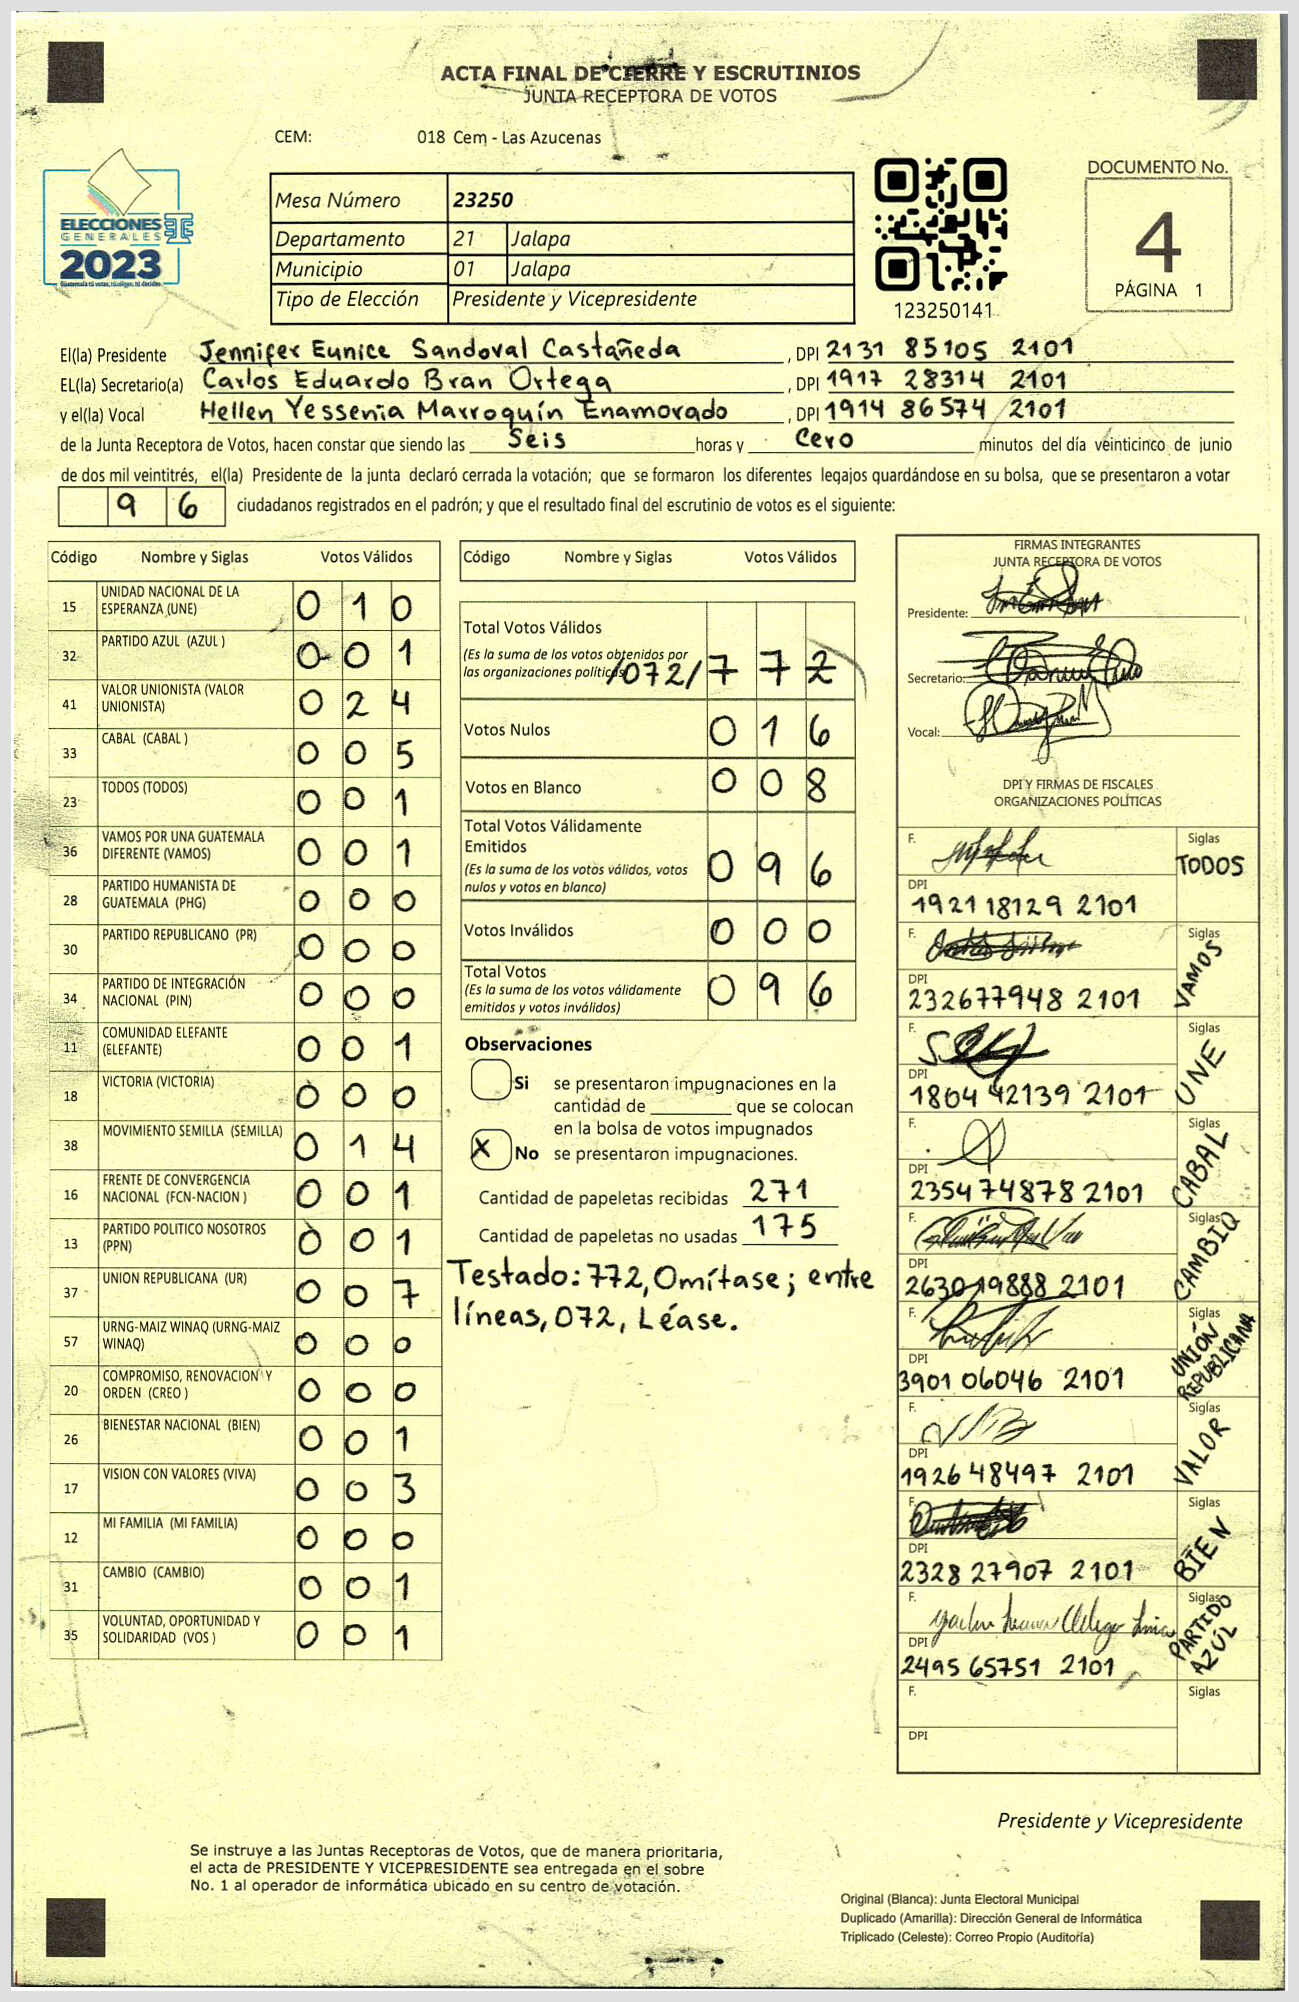 ACTA FINAL DE CIERRE Y ESCRUTINIOS
JUNTA RECEPTORA DE VOTOS
CEM: 018 Cem - Las Azucenas
ELECCIONES
GENERALES
2023
Guatemala tú votas, tú eliges, tú decides
Mesa Número 23250
Departamento 21 Jalapa
Municipio 01 Jalapa
Tipo de Elección Presidente y Vicepresidente
123250141
DOCUMENTO No.
4
PÁGINA 1
El(la) Presidente Jennifer Eunice Sandoval Castañeda , DPI 2131 85105 2101
EL(la) Secretario(a) Carlos Eduardo Bran Ortega , DPI 1917 28314 2101
y el(la) Vocal Hellen Yessenia Marroquín Enamorado , DPI 1914 86574 2101
de la Junta Receptora de Votos, hacen constar que siendo las Seis horas y Cero minutos del día veinticinco de junio
de dos mil veintitrés, el(la) Presidente de la junta declaró cerrada la votación; que se formaron los diferentes legajos guardándose en su bolsa, que se presentaron a votar
9 6 ciudadanos registrados en el padrón; y que el resultado final del escrutinio de votos es el siguiente:
Código Nombre y Siglas Votos Válidos
15 UNIDAD NACIONAL DE LA
ESPERANZA (UNE) 0 1 0
32 PARTIDO AZUL (AZUL ) 0 0 1
41 VALOR UNIONISTA (VALOR
UNIONISTA) 0 2 4
33 CABAL (CABAL ) 0 0 5
23 TODOS (TODOS) 0 0 1
36 VAMOS POR UNA GUATEMALA
DIFERENTE (VAMOS) 0 0 1
28 PARTIDO HUMANISTA DE
GUATEMALA (PHG) 0 0 0
30 PARTIDO REPUBLICANO (PR) 0 0 0
34 PARTIDO DE INTEGRACIÓN
NACIONAL (PIN) 0 0 0
11 COMUNIDAD ELEFANTE
(ELEFANTE) 0 0 1
18 VICTORIA (VICTORIA) 0 0 0
38 MOVIMIENTO SEMILLA (SEMILLA) 0 1 4
16 FRENTE DE CONVERGENCIA
NACIONAL (FCN-NACION ) 0 0 1
13 PARTIDO POLITICO NOSOTROS
(PPN) 0 0 1
37 UNION REPUBLICANA (UR) 0 0 7
57 URNG-MAIZ WINAQ (URNG-MAIZ
WINAQ) 0 0 0
20 COMPROMISO, RENOVACION Y
ORDEN (CREO ) 0 0 0
26 BIENESTAR NACIONAL (BIEN) 0 0 1
17 VISION CON VALORES (VIVA) 0 0 3
12 MI FAMILIA (MI FAMILIA) 0 0 0
31 CAMBIO (CAMBIO) 0 0 1
35 VOLUNTAD, OPORTUNIDAD Y
SOLIDARIDAD (VOS ) 0 0 1
Código Nombre y Siglas Votos Válidos
Total Votos Válidos
(Es la suma de los votos obtenidos por
las organizaciones políticas) /072/ 7 7 2
Votos Nulos 0 1 6
Votos en Blanco 0 0 8
Total Votos Válidamente
Emitidos
(Es la suma de los votos válidos, votos
nulos y votos en blanco) 0 9 6
Votos Inválidos 0 0 0
Total Votos
(Es la suma de los votos válidamente
emitidos y votos inválidos) 0 9 6
Observaciones
Si se presentaron impugnaciones en la
cantidad de ________ que se colocan
en la bolsa de votos impugnados
X No se presentaron impugnaciones.
Cantidad de papeletas recibidas 271
Cantidad de papeletas no usadas 175
Testado: 772, Omítase; entre
líneas, 072, Léase.
FIRMAS INTEGRANTES
JUNTA RECEPTORA DE VOTOS
Presidente:
Secretario:
Vocal:
DPI Y FIRMAS DE FISCALES
ORGANIZACIONES POLÍTICAS
F. Siglas
TODOS
DPI
1921 18129 2101
F. Siglas
VAMOS
DPI
232677948 2101
F. Siglas
UNE
DPI
1804 42139 2101
F. Siglas
CABAL
DPI
2354 74878 2101
F. Siglas
CAMBIO
DPI
2630 19888 2101
F. Siglas
UNIÓN
REPUBLICANA
DPI
3901 06046 2101
F. Siglas
VALOR
DPI
1926 48497 2101
F. Siglas
BIEN
DPI
2328 27907 2101
F. Siglas
PARTIDO
AZÚL
DPI
2495 65751 2101
F. Siglas
DPI
Presidente y Vicepresidente
Se instruye a las Juntas Receptoras de Votos, que de manera prioritaria,
el acta de PRESIDENTE Y VICEPRESIDENTE sea entregada en el sobre
No. 1 al operador de informática ubicado en su centro de votación.
Original (Blanca): Junta Electoral Municipal
Duplicado (Amarilla): Dirección General de Informática
Triplicado (Celeste): Correo Propio (Auditoría)